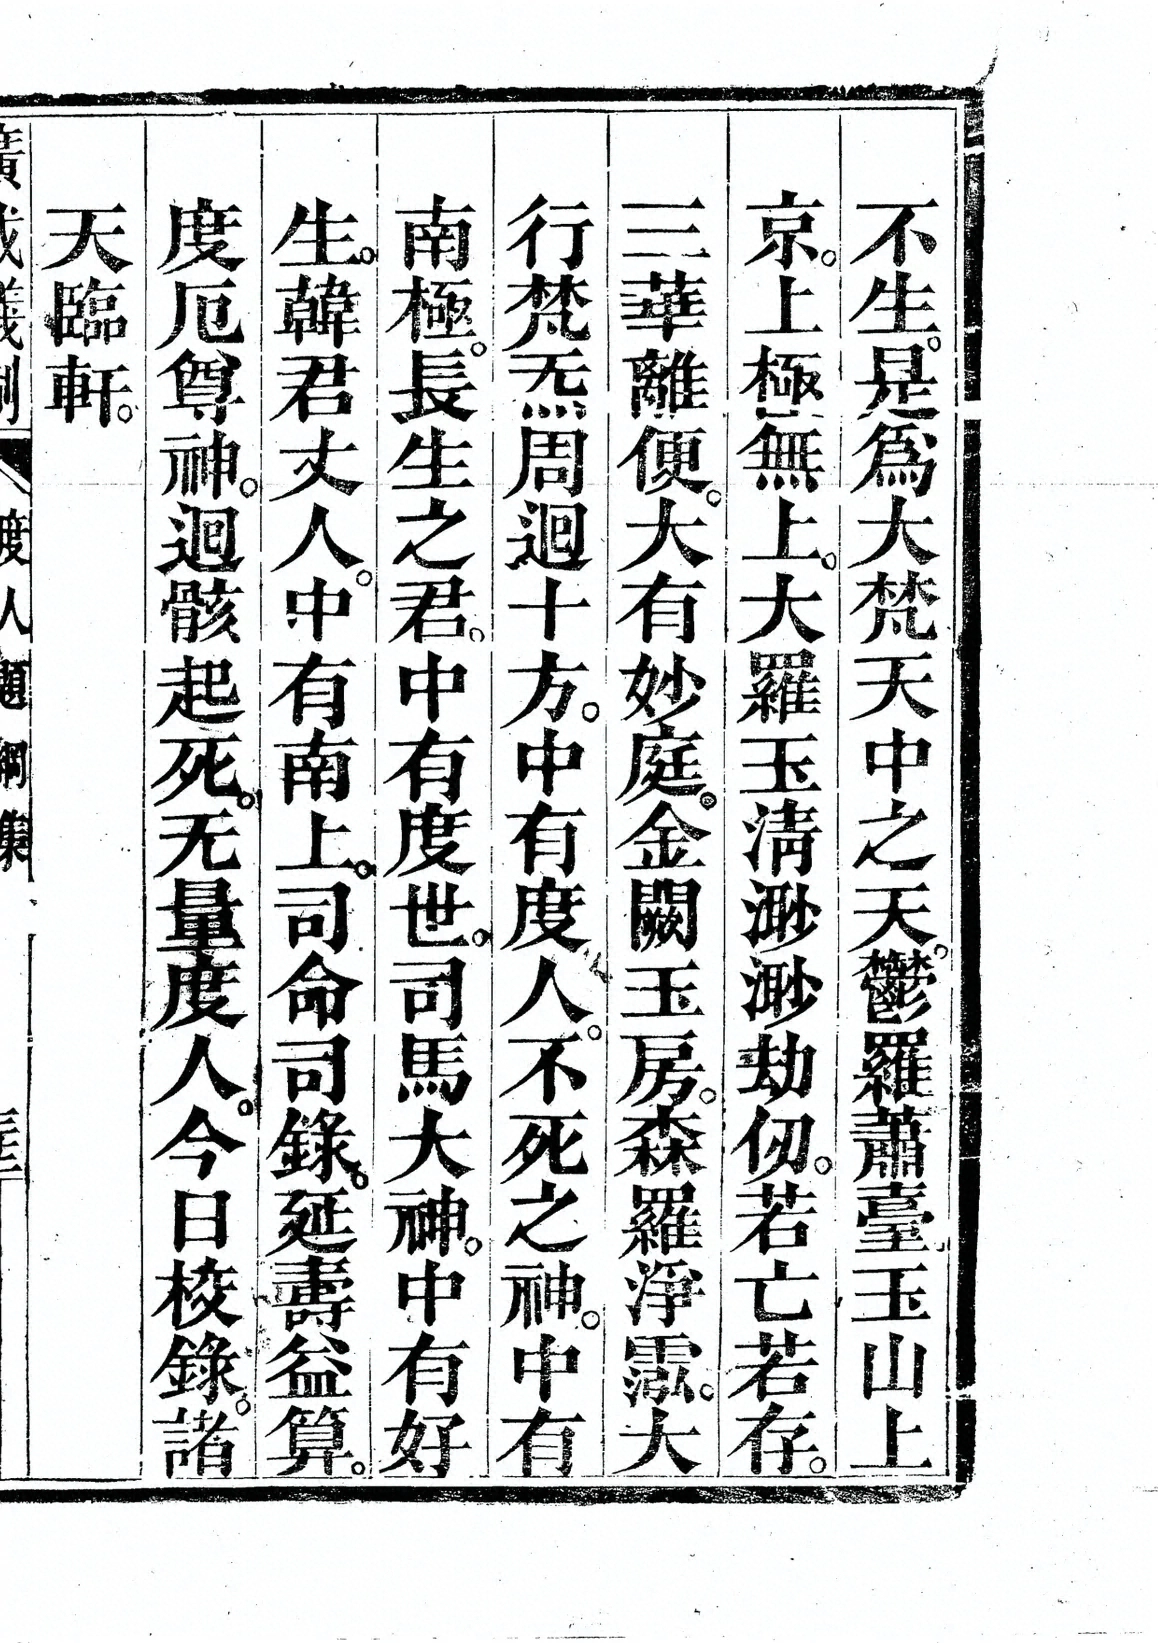 不生。是爲大梵天中之天。鬱羅蕭臺玉山上
京。上極無上。大羅玉淸渺渺劫仞。若亡若存。
三華離便。大有妙庭。金闕玉房。森羅淨泓。大
行梵炁周迴十方。中有度人。不死之神。中有
南極。長生之君。中有度世。司馬大神。中有好
生。韓君丈人。中有南上。司命司錄。延壽益算。
度厄尊神。迴骸起死。无量度人。今日校錄。諸
天臨軒。
廣成儀制 度人題綱集